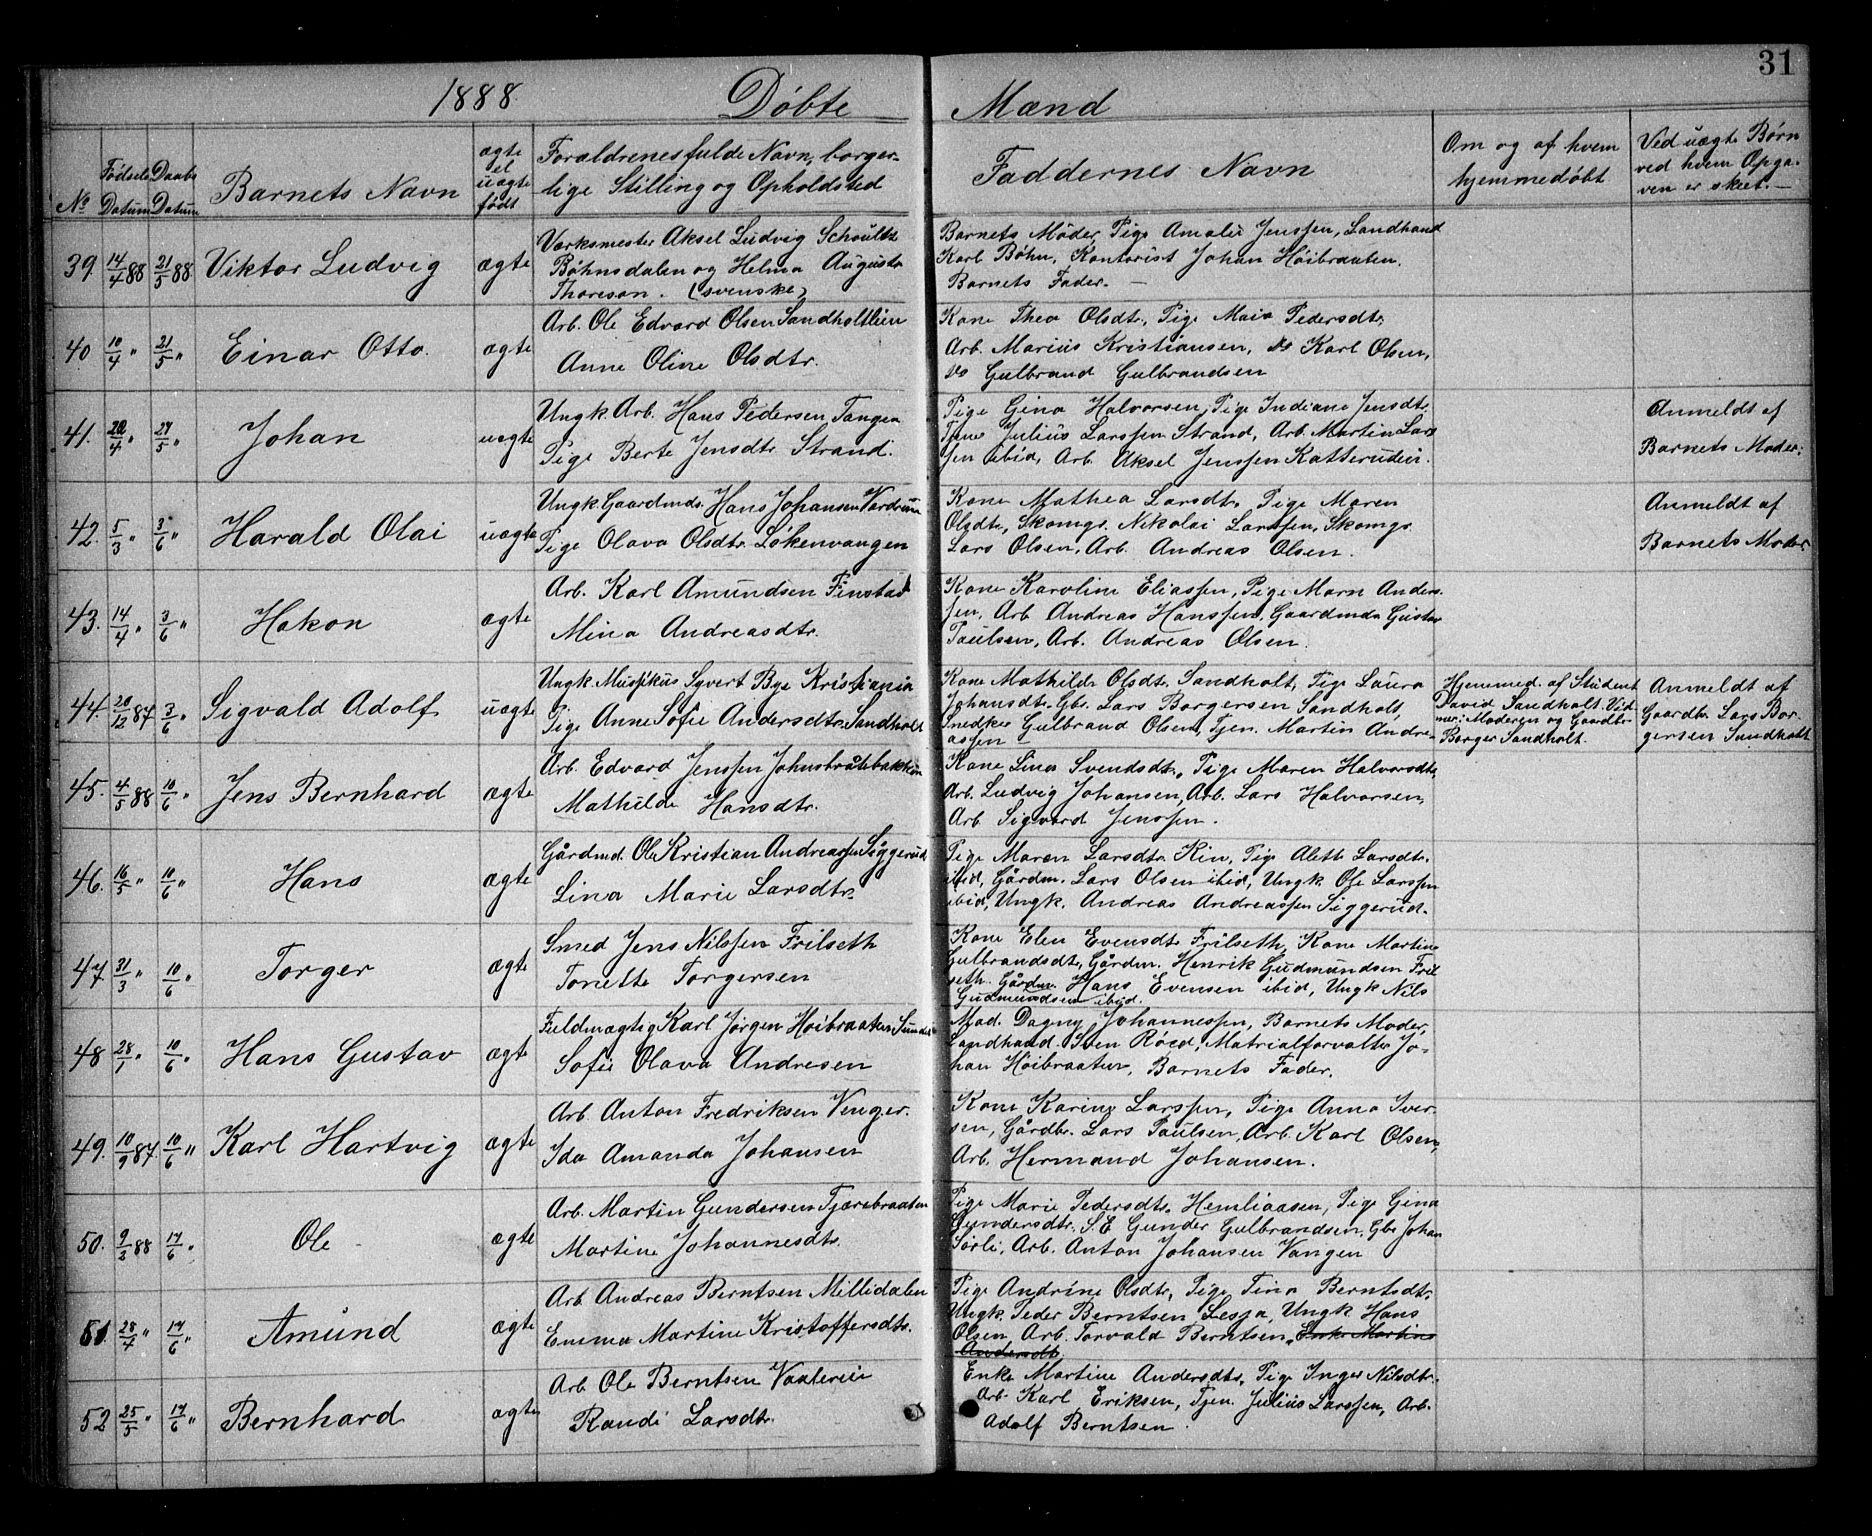 31
1888. Døbte Mænd
No
Fødsels Datum
Daabs Datum
Barnets Navn
ægte el uægte født
Forældrenes fulde Navn, borger-
lige Stilling og Opholdsted
Faddernes Navn
Om og af hvem
hjemmedøbt
Ved uægte Børn
ved hvem Opga-
ven er skeet.
39 14/4 88 21/5 88 Viktor Ludvig ægte
Værksmester Aksel Ludvig Schoultz
Bøhnsdalen og Helma Augusta
Thoreson. (svenske)
Barnets Moder, Pige Amalie Jenssen, Landhand
Karl Bøhn, Kontorist Johan Høibraaten,
Barnets Fader.
40 10/4 " 21/5 " Einar Otto. ægte
Arb. Ole Edvard Olsen Sandholtlien
Anne Oline Olsdtr.
Kone Thea Olsdtr, Pige Maia Pedersdtr,
Arb. Marius Kristiansen, do Karl Olsen,
do Gulbrand Gulbrandsen
41. 20/4 " 27/5 " Johan uægte
Ungk. Arb. Hans Pedersen Tangen
Pige Berte Jensdtr Strand.
Pige Gina Halvorsen, Pige Indiane Jensdtr.
Julius Larssen Strand, Arb. Martin Lars
sen ibid, Arb. Aksel Jenssen Katterudeie.
Anmeldt af
Barnets Moder.
42. 5/3 " 3/6 " Harald Olai uægte
Ungk. Gaardmds. Hans Johansen Vardrum
Pige Olava Olsdtr. Løkenvangen
Kone Mathea Larsdtr, Pige Maren
Olsdtr, Skomgr. Nikolai Larssen, Skomgr.
Lars Olsen, Arb. Andreas Olsen.
Anmeldt af
Barnets Moder
43. 14/4 " 3/6 " Hakon ægte
Arb. Karl Amundsen Finstad
Mina Andreasdtr.
Kone Karoline Eliassen, Pige Marn Anders-
sen, Arb Andreas Hanssen, Gaardmds Gustav
Paulsen, Arb. Andreas Olsen.
44. 20/12 87 3/6 " Sigvald Adolf uægte
Ungk. Mussikus Syvert Bye Kristiania
Pige Anne Sofie Andersdtr. Sandholt
Kone Mathilde Olsdtr. Sandholt, Pige Laura
Johansdtr. Gbr. Lars Borgersen Sandholt,
Snedker Gulbrand Olsen, Tjen. Martin Andre-
assen
Hjemmed. af Student
David Sandholt. Vid-
ner: Moderen og Gaardbr
Borger Sandholt.
Anmeldt af
Gaardbr. Lars Bor-
gersen Sandholt
45. 4/5 88 10/6 " Jens Bernhard ægte
Arb. Edvard Jenssen Johnsbråtebakken
Mathilde Hansdtr.
Kone Lina Svendsdtr, Pige Maren Halvorsdtr,
Arb. Ludvig Johansen, Arb. Lars Halvorsen,
Arb Sigvard Jenssen.
46. 16/5 " 10/6 " Hans ægte
Gårdmd. Ole Kristian Andreassen Siggerud
Lina Marie Larsdtr.
Pige Maren Larsdtr. Rin, Pige Alette Larsdtr.
ibid, Gårdm. Lars Olsen ibid, Ungk. Ole Larssen
ibid, Ungk. Andreas Andreassen Siggerud.
47 31/3 " 10/6 " Torger ægte
Smed Jens Nilssen Frilseth
Tonette Torgersen
Kone Elen Evensdtr Frilseth, Kone Martine
Gulbrandsdtr, Gårdm. Henrik Gudmundsen Fril
seth. Gårdm. Hans Evensen ibid, Ungk Nils
Gudmundsen ibid.
48 28/1 " 10/6 " Hans Gustav ægte
Fuldmægtig Karl Jørgen Høibraaten Sunde
Sofie Olava Andresen
Mad. Dagny Johannessen, Barnets Moder,
Landhand. Sven Röed, Matrialforvalter Jo-
han Høibraaten, Barnets Fader.
49. 10/9 87. 10/6 " Karl Hartvig ægte
Arb. Anton Fredriksen Venger.
Ida Amanda Johansen
Kone Karine Larssen, Pige Anna Iver-
sen, Gårdbr. Lars Paulsen, Arb. Karl Olsen,
Arb. Hermand Johansen.
50. 9/3 88 17/6 " Ole ægte
Arb. Martin Gundersen Tjærebraaten
Martine Johannesdtr.
Pige Marie Pedersdtr. Hemliaasen, Pige Gina
Gundersdtr. S.E Gunder Gulbrandsen, Gbr Johan
Sørli, Arb. Anton Johansen Vangen
51. 28/4 " 17/6 " Amund ægte
Arb. Andreas Berntsen Millidalen
Emma Martine Kristoffersdtr.
Pige Andrine Olsdtr, Pige Tina Berntsdtr.
Ungk. Peder Berntsen Lessa, Ungk Hans
Olsen, Arb. Torvald Berntsen, Enke Martine
Andersdtr.
52 25/5 " 17/6 " Bernhard ægte
Arb Ole Berntsen Vaatereie
Randi Larsdtr.
Enke Martine Andersdtr, Pige Inger Nilsdtr.
Arb. Karl Eriksen, Tjen. Julius Larssen, Arb.
Adolf Berntsen.